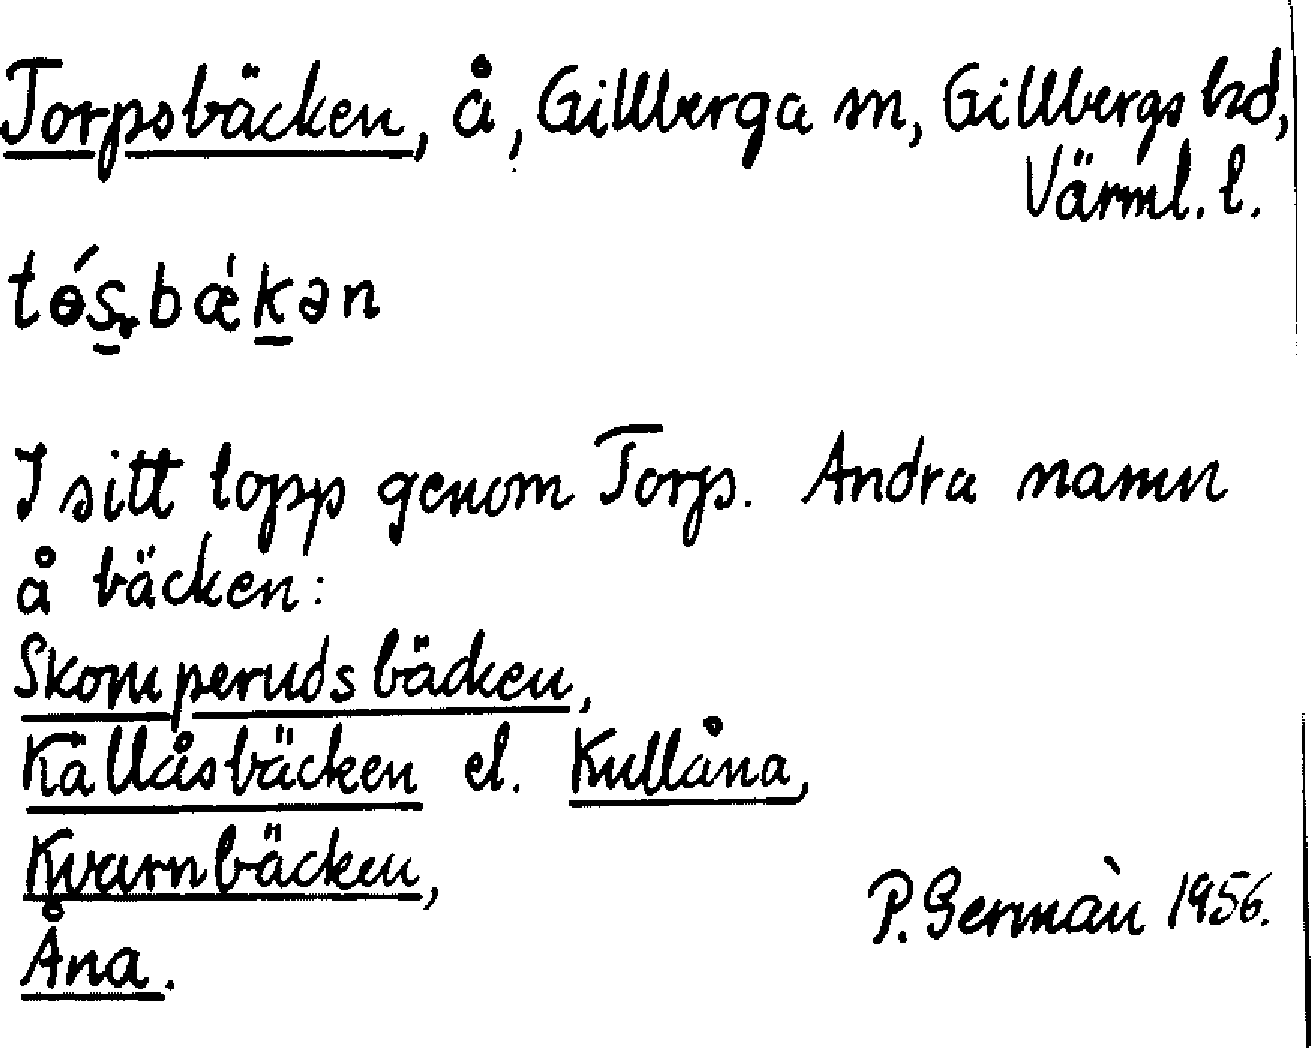 Torpsbäcken, å, Gillberga sn, Gillbergs hd,
Värml. l.
tɵ́s̠.bǽk̠ən
I sitt lopp genom Torp. Andra namn
å bäcken:
Skomperudsbäcken,
Källåsbäcken el. Kullåna,
Kvarnbäcken,
Åna.
P. Germàn 1956.